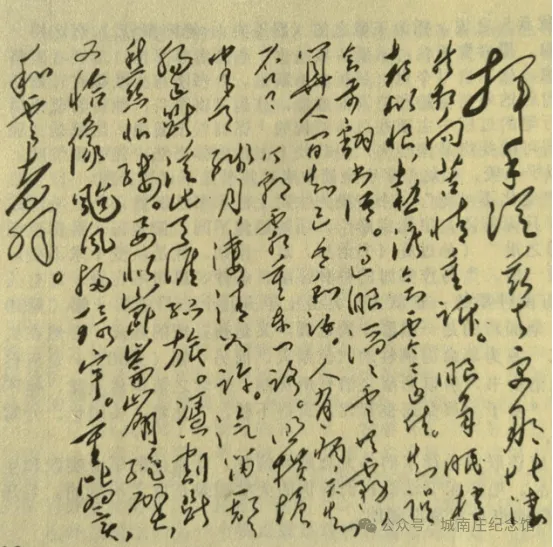 挥手从兹去更那堪凄
然相向苦情重诉。眼角眉梢
都似恨,热泪欲零还住。知误
会前翻书语。过眼滔滔云共雾,
算人间知己吾和汝。人有病,天知
否? 今朝霜重东门路。照横塘
半天残月,凄清如许。汽笛一声
肠已断,从此天涯孤旅。凭割断
愁丝恨缕。要似崑崙崩绝壁,
又恰像颱风扫环宇。重比翼,
和云翥。
公众号·城南庄纪念馆